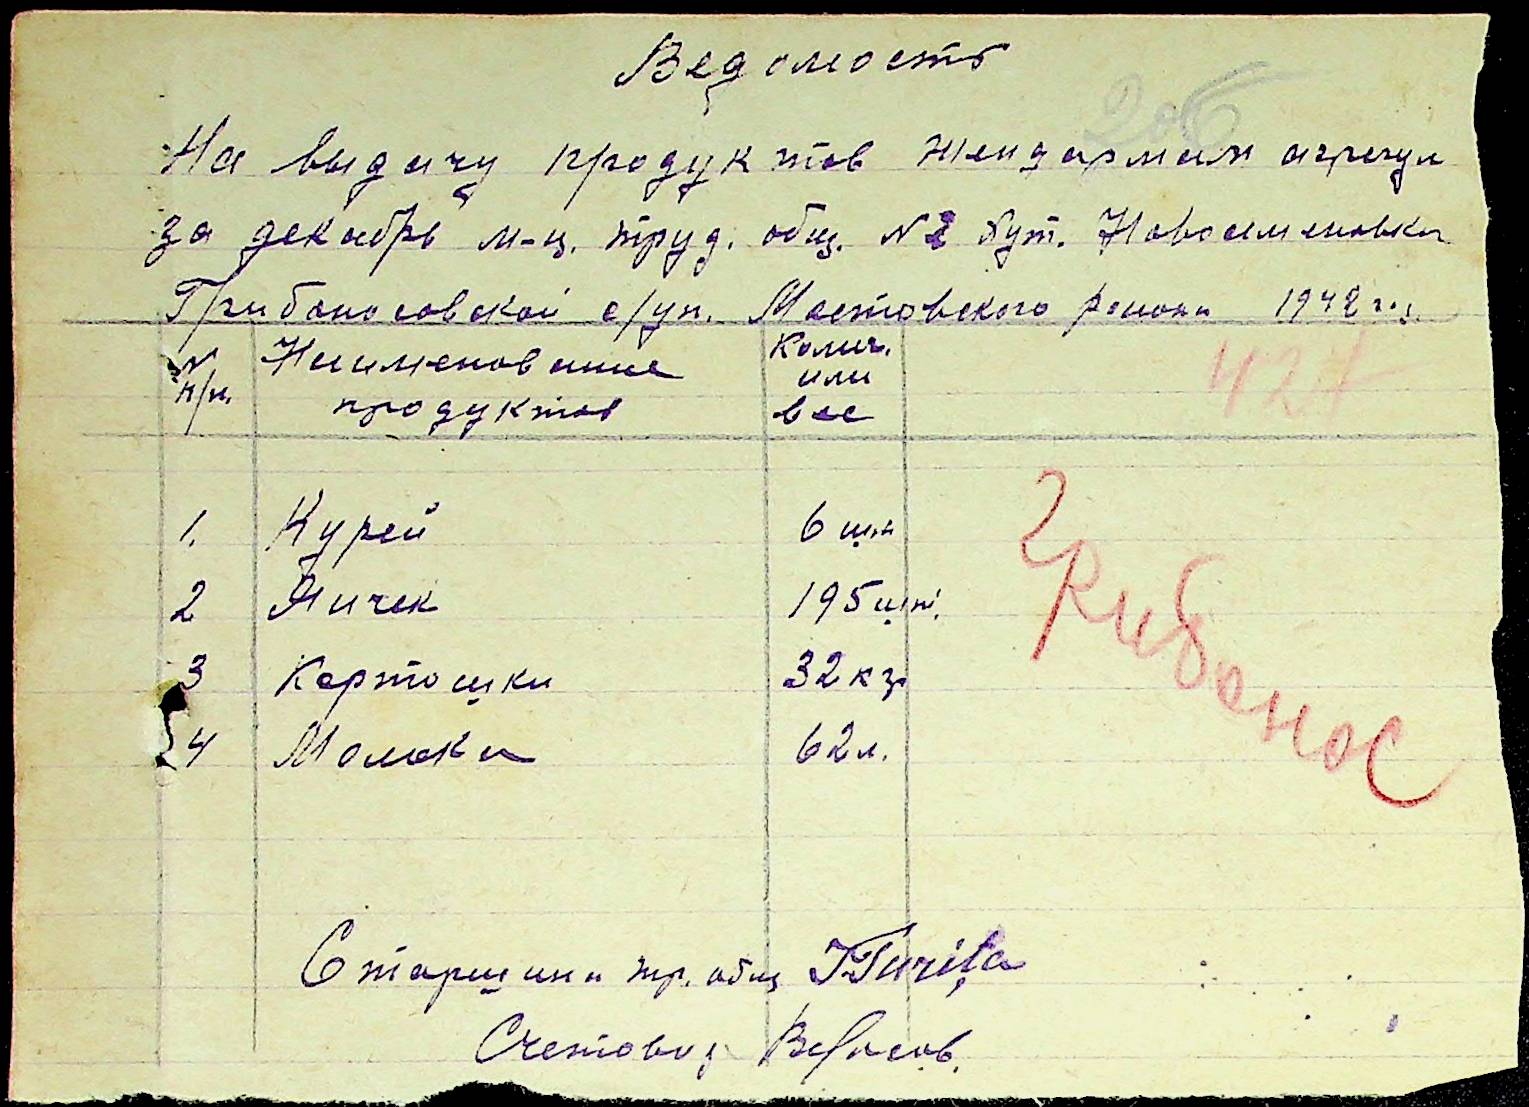 Ведомость
206
На выдачу продуктов жендармам
за декабрь м-ц. труд. общ. № 2 хут. Новосеменовка
Грибоносовской с/уп. Мостовского района 1942 г.
N п/п. Наименование продуктов Колич. или вес
427
1. Курей 6 шт
2 Яичек 195 шт.
3 Картошки 32 кг
4 Молока 62 л.
Грибонос
Старшина тр. общ
Счетовод